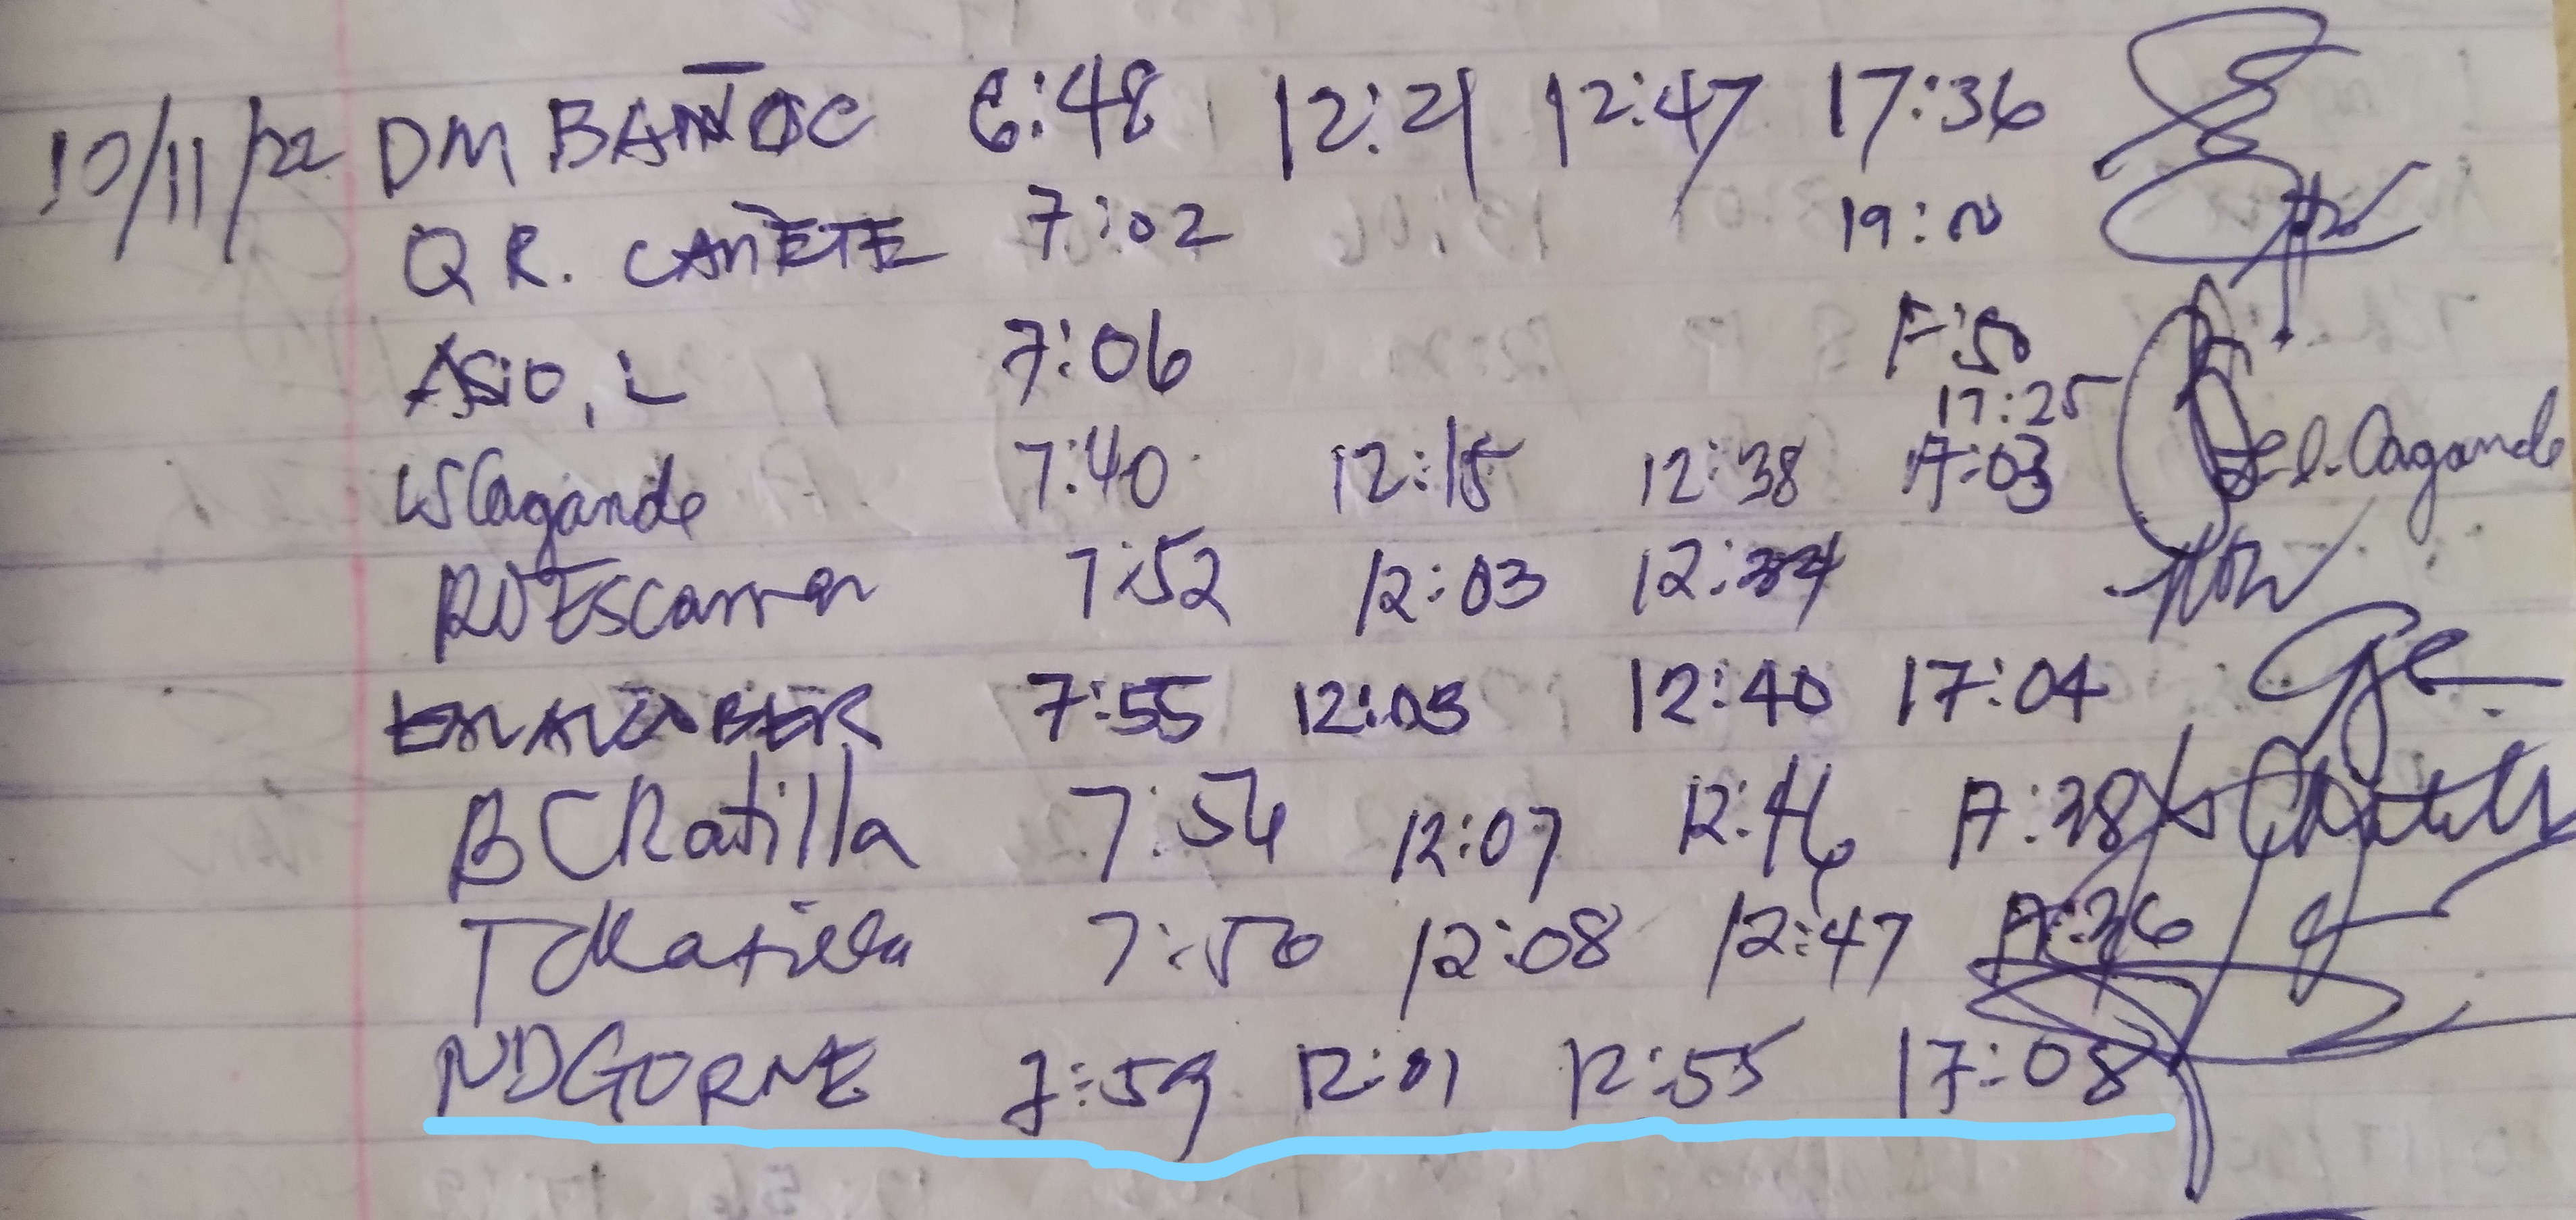 10/11/22 DM BAÑOC 6:48 12:21 12:47 17:36
QR. CAÑETE 7:02 19:20
ASIO, L 7:06 17:50
17:25
LSCagande 7:40 12:15 12:38 17:03 Cagande
RDEscarran 7:52 12:03 12:34
7:55 12:05 12:40 17:04
BCRatilla 7:56 12:07 12:46 17:38
TCRatilla 7:50 12:08 12:47 17:36
NDGORNE 7:59 12:01 12:55 17:08